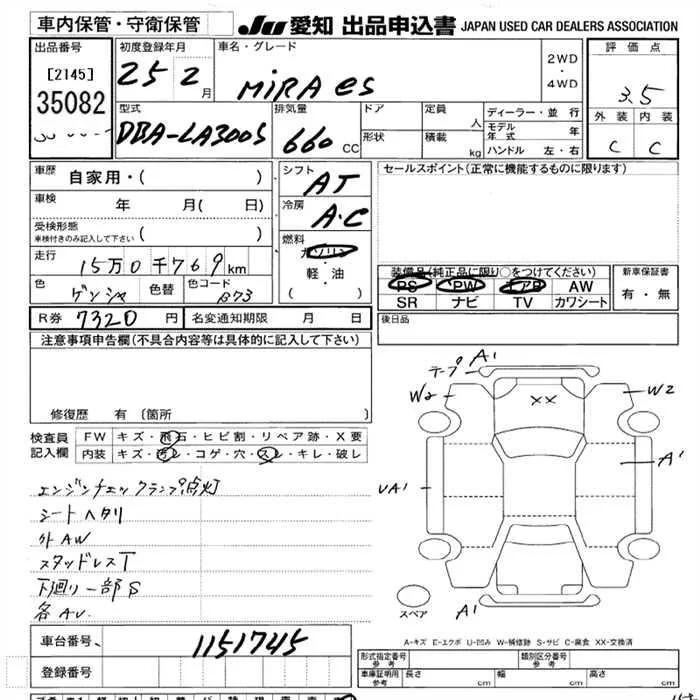 車内保管・守衛保管 JU 愛知 出品申込書 JAPAN USED CAR DEALERS ASSOCIATION
出品番号 初度登録年月 車名・グレード 評価点
[2145] 25 2月 MiRA es 2WD・4WD 3.5
35082
型式 排気量 ドア 定員 人 ディーラー・並行 外装 内装
DBA-LA300S 660CC 形状 積載 kg モデル年式 年 C C
ハンドル 左・右
車歴 自家用・( ) シフト AT セールスポイント(正常に機能するものに限ります)
車検 年 月( 日) 冷房 A・C
受検形態
車検付きのみ記入して下さい
走行 15万0千769km 燃料 ガソリン・軽・油( )
装備品(純正品に限り○をつけてください) 新車保証書
色 ゲンシャ 色替 色コード B73 PS PW エアB AW 有・無
SR ナビ TV カワシート
R券 7320円 名変通知期限 月 日 後日品
注意事項申告欄(不具合内容等は具体的に記入して下さい)
修復歴 有(箇所
検査員記入欄 FW キズ・飛石・ヒビ割・リペア跡・X要
内装 キズ・汚レ・コゲ・穴・スレ・キレ・破レ
エンジンチェックランプ点灯
シートヘタリ
外AW
スタッドレスT
下廻り一部S
各AU
テープ A1
W2 XX W2
A1
UA1
スペア A1
A-キズ E-エクボ U-凹み W-補修跡 S-サビ C-腐食 XX-交換済
車台番号 1151745
登録番号
形式指定番号 参考 類別区分番号 参考
車庫証明用 参考 長さ cm 幅 cm 高さ cm